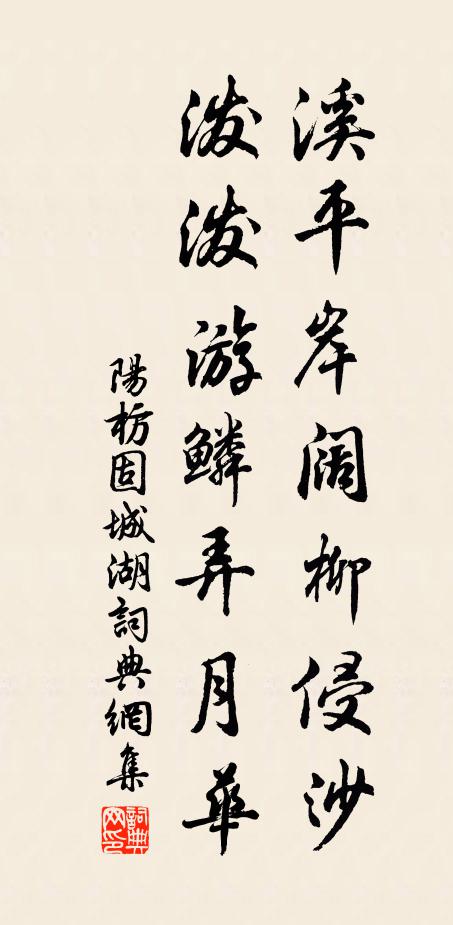 溪平岸阔柳侵沙
泼泼游鳞弄月華
陽枋固城湖詞典網集
詞典网印